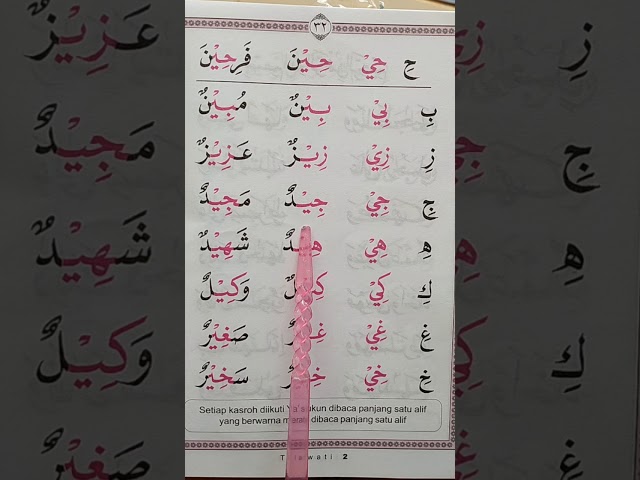 ٣٢
ح حِيْ حِيْنَ فَرِحِيْنَ
بِ بِيْ بِيْنٌ مُبِيْنٌ
زِ زِيْ زِيْزٌ عَزِيْزٌ
جِ جِيْ جِيْدٌ مَجِيْدٌ
هِ هِيْ هِيْدٌ شَهِيْدٌ
كِ كِيْ كِيْلٌ وَكِيْلٌ
غِ غِيْ غِيْرٌ صَغِيْرٌ
خِ خِيْ خِيْرٌ سَخِيْرٌ
Setiap kasroh diikuti Ya' sukun dibaca panjang satu alif
yang berwarna merah dibaca panjang satu alif
Tilawati 2